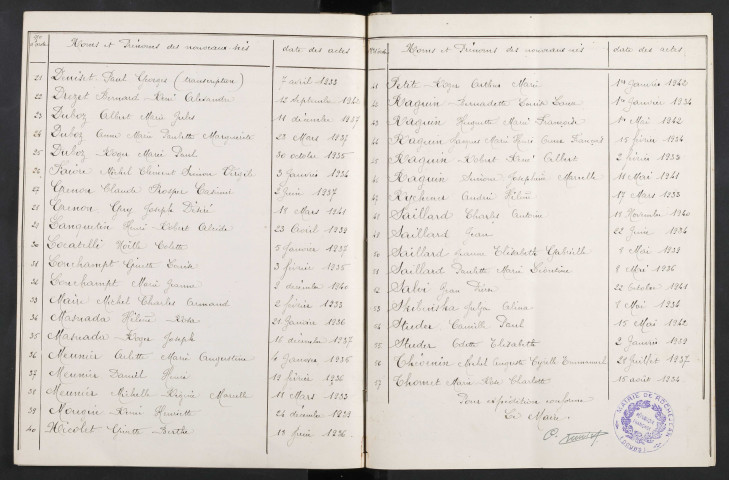 Noms et Prénoms des nouveaux nés date des actes
21 Denizet Paul Georges (transcription) 7 avril 1933
22 Drezet Bernard René Alexandre 12 septembre 1942
23 Duboz Albert Marie Jules 11 décembre 1937
24 Duboz Anna Marie Paulette Marguerite 29 Mars 1937
25 Duboz Roger Marie Paul 30 octobre 1935
26 Faivre Michel Clément 3 Janvier 1934
27 Grenon Claude Prosper 2 Juin 1937
28 Grenon Guy Joseph Désiré 18 Mars 1941
29 Lanquetin René Robert 23 Avril 1933
30 Locatelli Noëlle Colette 5 Janvier 1937
31 Louchampt Ginette Louise 3 février 1935
32 Louchampt Marie Jeanne 2 décembre 1940
33 Maire Michel Charles Armand 2 février 1933
34 Masnada Hélène Rosa 21 Janvier 1936
35 Masnada Roger Joseph 16 décembre 1937
36 Meunier Arlette Marie Augustine 4 Janvier 1935
37 Meunier Daniel Henri 19 février 1936
38 Meunier Michelle Marcelle 11 Mars 1933
39 Mougin René Henriette 24 décembre 1939
40 Nicolet Ginette Berthe 19 Juin 1936
Noms et Prénoms des nouveaux nés date des actes
41 Petit Roger Arthur Marie 1er Janvier 1942
42 Raguin Bernadette 1er Janvier 1934
43 Raguin Huguette Marie Françoise 1er Mai 1942
44 Raguin Jacques Marie Henri François 15 février 1934
45 Raguin Robert René Albert 2 février 1933
46 Raguin Simone Joséphine Marcelle 11 Mai 1941
47 André 17 Mars 1933
48 Saillard Charles Antoine 18 Novembre 1940
49 Saillard Jean 22 Juin 1934
50 Saillard Jeanne Elisabeth Gabrielle 5 Mai 1939
51 Saillard Paulette Marie Léontine 8 Mai 1936
52 Salvi Jean Pierre 22 octobre 1941
53 8 Mai 1934
54 Studer Camille Paul 15 Mai 1942
55 Studer Odette Elisabeth 2 Janvier 1939
56 Thiévenin Michel Auguste Cyrille Emmanuel 21 Juillet 1937
57 Thomet Marie Rose Charlotte 15 août 1934
Pour expédition conforme
Le Maire.
MAIRIE DE ROCHEJEAN
(DOUBS)